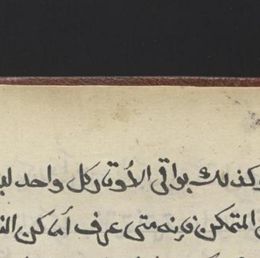 وكذلك بواقي الأوتار كل واحد
المتمكن فإنه متى عرف أماكن